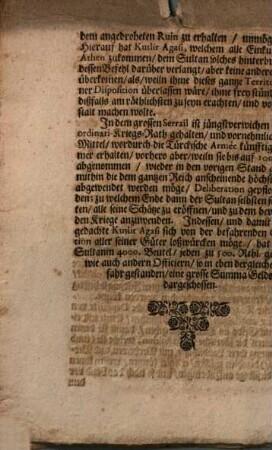 dem angedroheten Ruin zu erhalten / unmög
Hierauf hat Kuslir Agasi, welchem alle Einku
Athen zukommen / dem Sultan solches hinterbr
dessen Befehl darüber verlangt / aber keine ander
überkommen / als / weiln ihme dieses gantze Territo
ner Disposition überlassen wäre / ihme frey stün
dißfalls am räthlichsten zu seyn erachten / und vor
stalt machen wolte.
In dem grossen Serrail ist jüngst verwichen
ordinari-Kriegs-Rath gehalten / und vornehmlic
Mittel / wordurch die Türckische Armée künfftig
mer erhalten / vorhero aber / weiln sie bis auf 10
abgenommen / wieder in den vorigen Stand
mithin die dem gantzen Reich anscheinende höchst
abgewendet werden möge / Deliberation gepflo
den; zu welchem Ende dann der Sultan selbsten s
ten / alle seine Schätze zu eröffnen / und zu dem be
den Kriege anzuwenden. Indessen / und damit
gedachte Kuslir Agasi sich von der befahrenden
tion aller seiner Güter loßwürcken möge / hat
Sultanin 4000. Beutel / jeden zu 500. Rthl. g
wie auch andern Officiern / so in eben dergleiche
fahr gestanden / eine grosse Summa Gelde
dargeschossen.